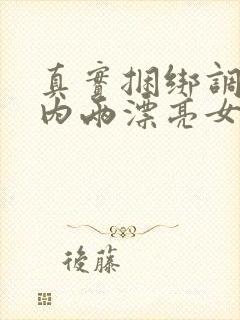 真實捆綁調
內兩漂亮女
後藤